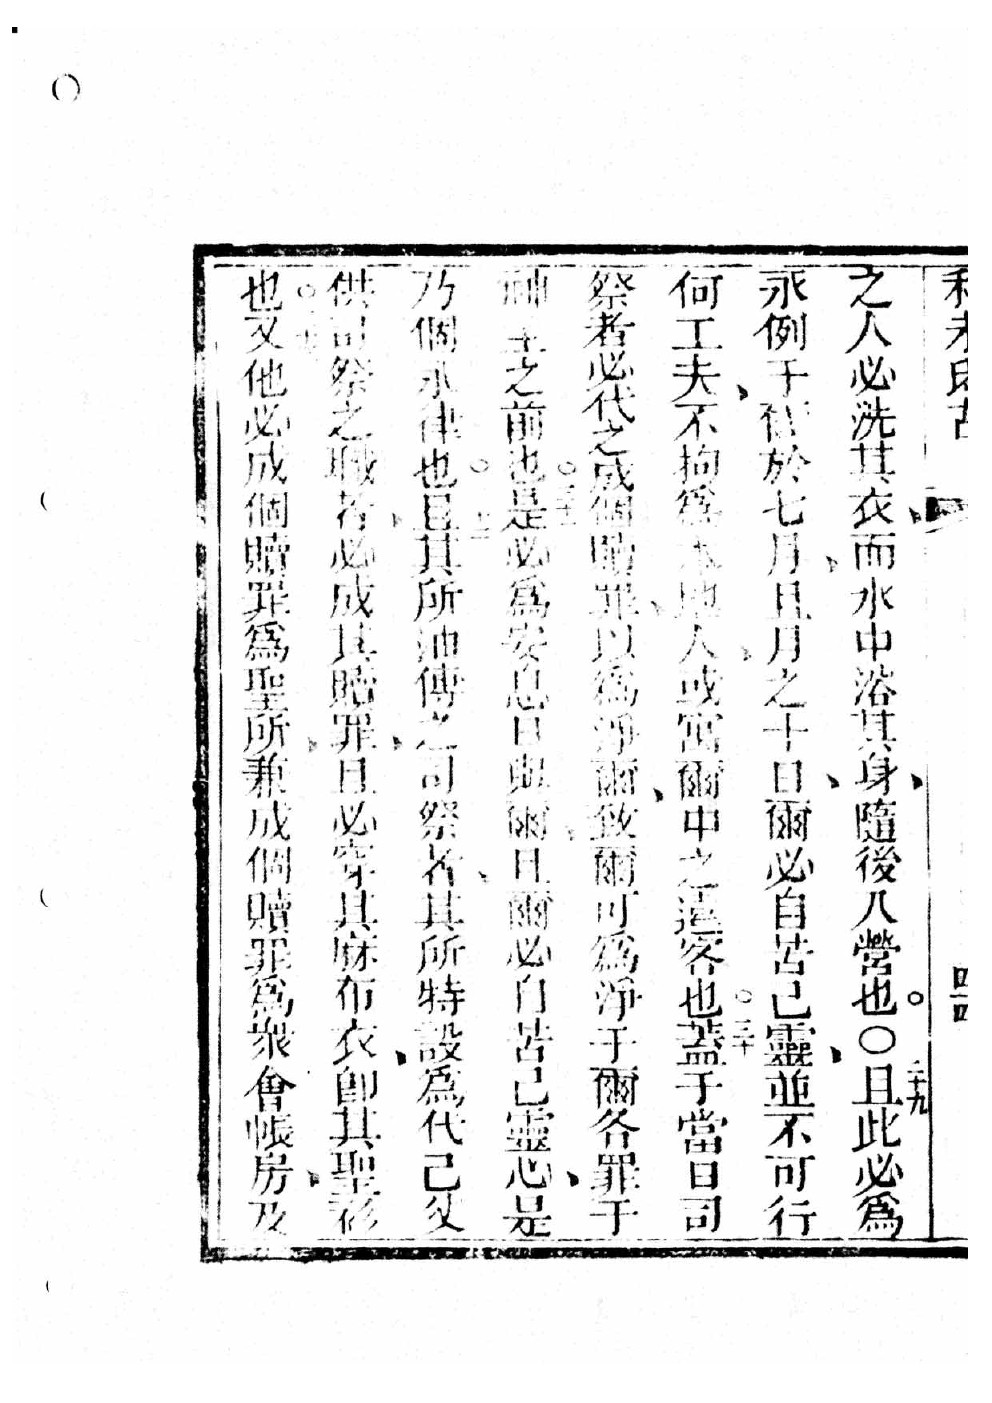 利未氏古
四十四
之人必洗其衣而水中浴其身隨後入營也○且此必爲
二十九
永例于爾於七月且月之十日爾必自苦己靈並不可行
何工夫不拘爲本地人或寓爾中之遠客也蓋于當日司
三十
祭者必代之成個贖罪以爲淨爾致爾可爲淨于爾各罪于
神主之前也是必爲安息日與爾且爾必自苦己靈心是
三十一
乃個永律也且其所油傅之司祭者其所特設爲代己父
三十二
供司祭之職者必成其贖罪且必穿其麻布衣卽其聖衫
也又他必成個贖罪爲聖所兼成個贖罪爲衆會帳房及